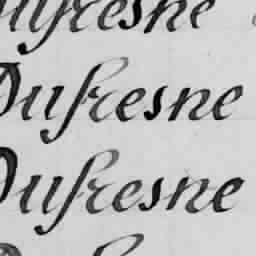 Dufresne
Dufresne
Dufresne